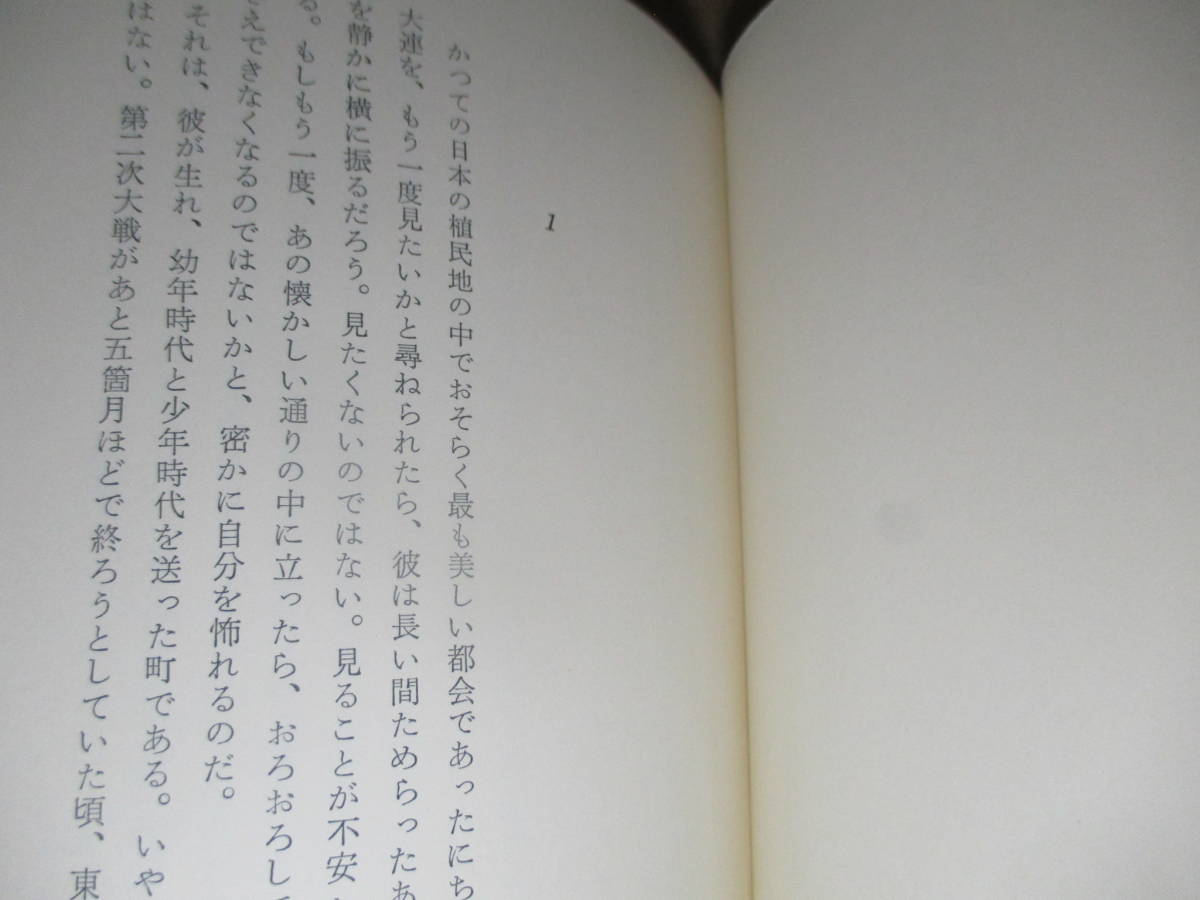 1
かつての日本の植民地の中でおそらく最も美しい都会であったにち
大連を、もう一度見たいかと尋ねられたら、彼は長い間ためらったあ
を静かに横に振るだろう。見たくないのではない。見ることが不安
る。もしもう一度、あの懐かしい通りの中に立ったら、おろおろして
さえできなくなるのではないかと、密かに自分を怖れるのだ。
それは、彼が生れ、幼年時代と少年時代を送った町である。いや
はない。第二次大戦があと五箇月ほどで終ろうとしていた頃、東